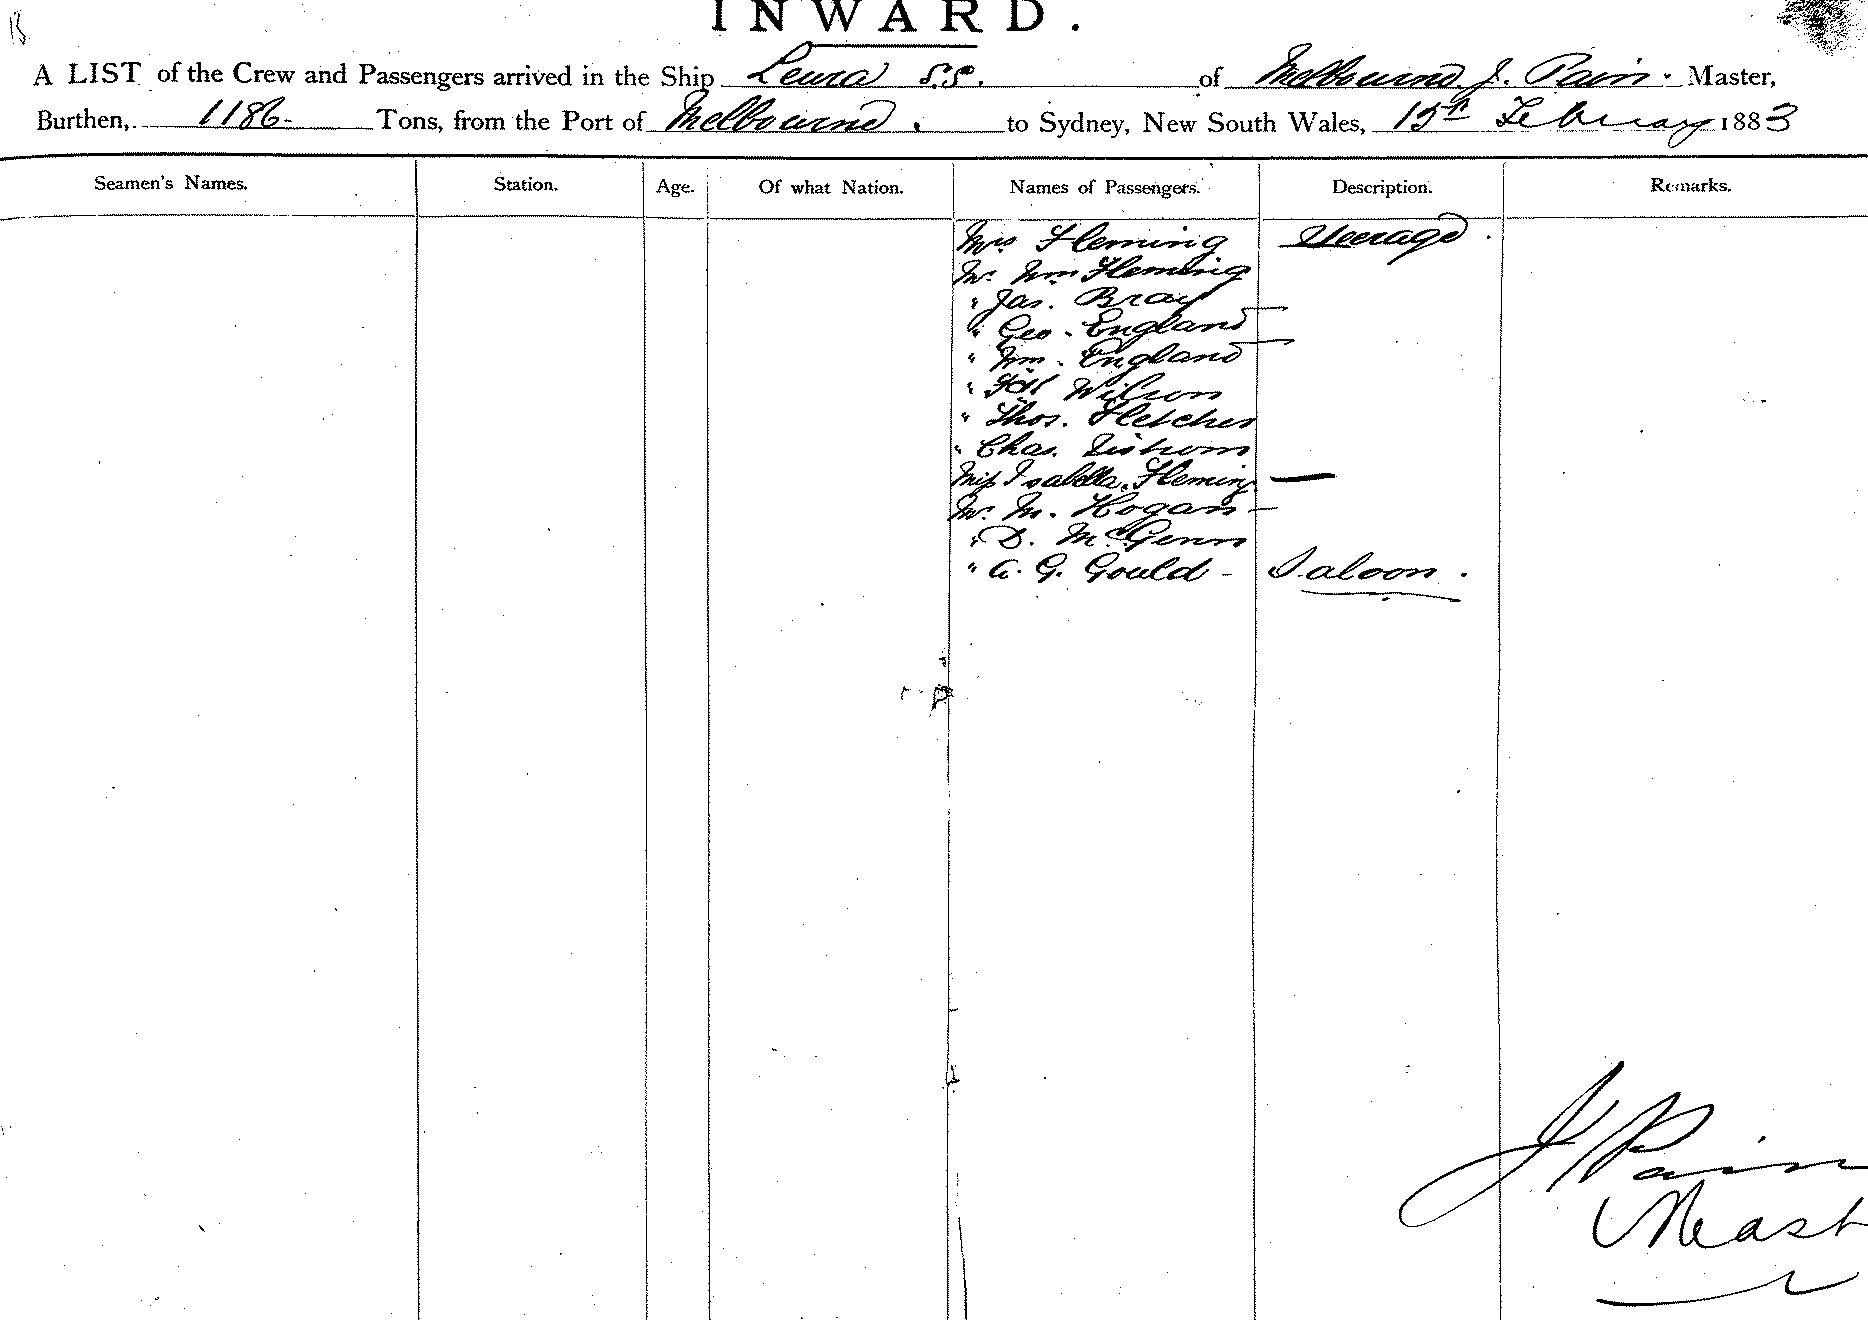 INWARD.
A LIST of the Crew and Passengers arrived in the Ship Leura S.S. of Melbourne J. Pain. Master,
Burthen, 1186 Tons, from the Port of Melbourne. to Sydney, New South Wales, 15th February 1883
Seamen's Names. Station. Age. Of what Nation. Names of Passengers. Description. Remarks.
Mrs Fleming Steerage.
Mr. Wm Fleming
" Jas. Bray
" Geo. England
" Wm. England
" Wilson
" Thos. Fletcher
" Chas.
Miss Isabella Fleming —
Mr. M. Hogan -
" D.
" A. G. Gould - Saloon.
J Pain
Mast